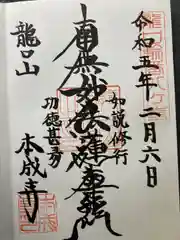 令和五年二月六日
如説修行
南無妙法蓮華経
功徳甚多
龍口山
本成寺